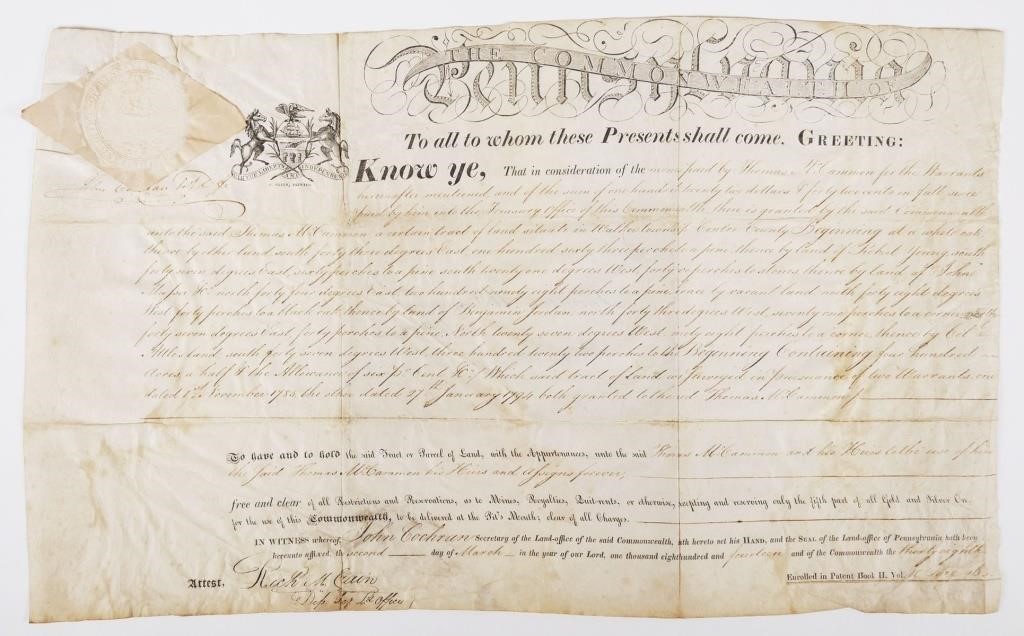 THE COMMONWEALTH OF
Pennsylvania
To all to whom these Presents shall come, GREETING:
Know ye, That in consideration of the monies paid by Thomas McCammon for the Warrants
hereinafter mentioned and of the sum of one hundred twenty two dollars & forty two cents in full since
paid by him into the Treasury Office of this Commonwealth there is granted by the said Commonwealth
unto the said Thomas McCammon a certain tract of land situate in Walker township Centre County Beginning at a white oak
thence by other land south forty three degrees East, one hundred sixty three perches to a pine thence by land of Robert Young south
forty seven degrees East, sixty perches to a pine south twenty one degrees West, forty perches to stones thence by land of John
north forty five degrees East, two hundred ninety eight perches to a pine thence by vacant land north forty eight degrees
West forty perches to a black oak thence by land of Benjamin Jordan north forty three degrees West, seventy one perches to a corner
forty seven degrees East forty perches to a pine North twenty seven degrees West, ninety eight perches to a corner, thence by Col.
land south forty seven degrees West, three hundred twenty two perches to the Beginning Containing four hundred
Acres a half & the Allowance of six pr. Cent &c. Which said tract of Land was surveyed in pursuance of two Warrants, one
dated 1st November 1785, the other dated 27th January 1794 both granted to the said Thomas McCammon
To have and to hold the said Tract or Parcel of Land, with the Appurtenances, unto the said Thomas McCammon and his Heirs to the use of him
the said Thomas McCammon his Heirs and Assigns forever,
free and clear of all Restrictions and Reservations, as to Mines, Royalties, Quit-rents, or otherwise, excepting and reserving only the fifth part of all Gold and Silver Ore
for the use of this Commonwealth, to be delivered at the Pit's Mouth; clear of all Charges.
IN WITNESS whereof, John Cochran Secretary of the Land-office of the said Commonwealth, hath hereto set his HAND, and the SEAL of the Land-office of Pennsylvania hath been
hereunto affixed, the second day of March in the year of our Lord, one thousand eight hundred and fourteen and of the Commonwealth the thirty eighth
Enrolled in Patent Book H. Vol.
Attest.